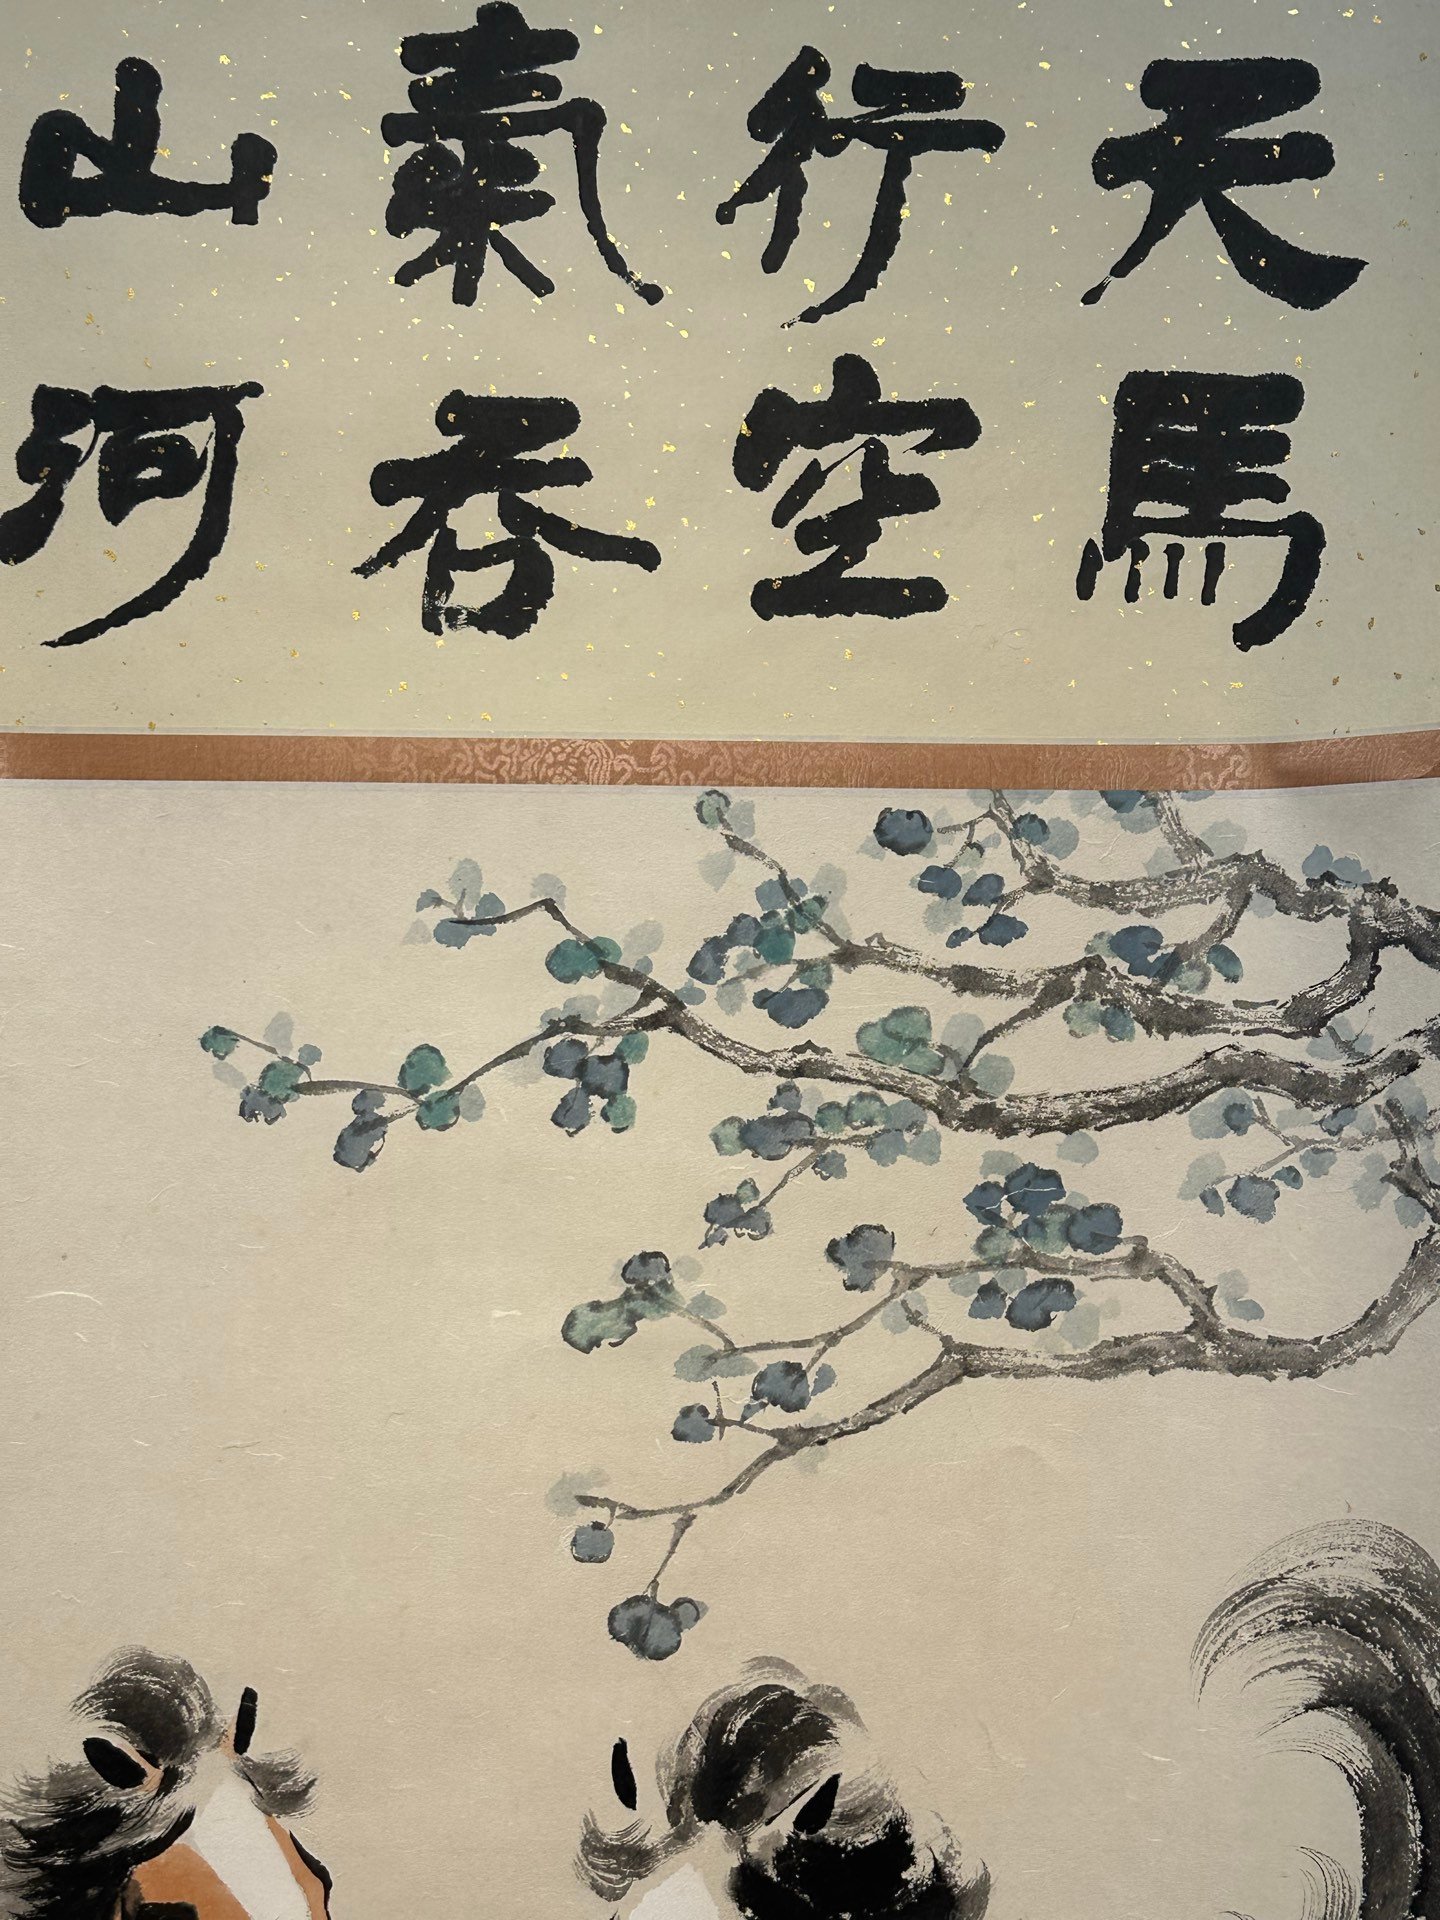 天馬
行空
氣吞
山河